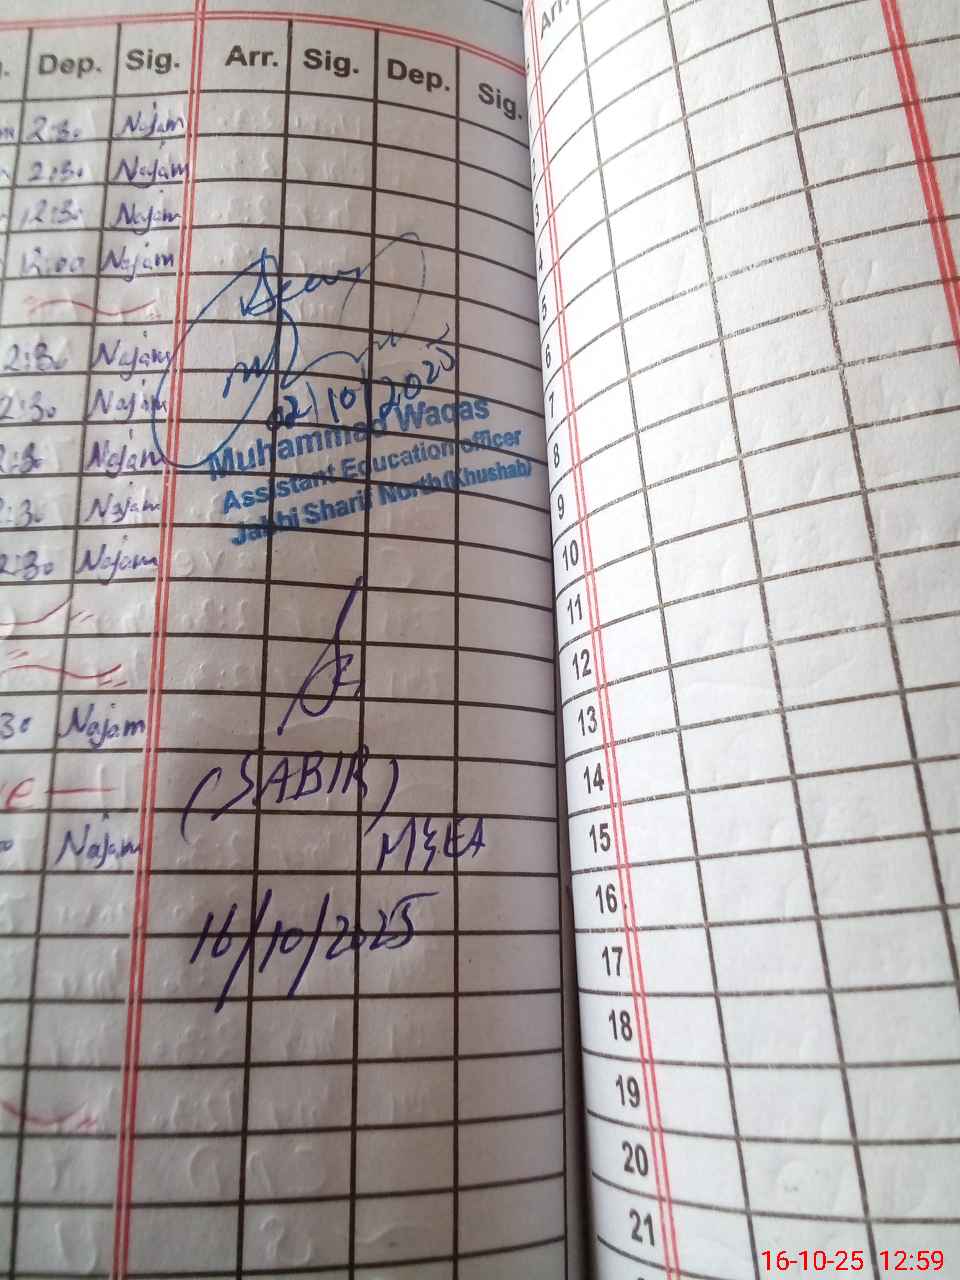 Dep. Sig. Arr. Sig. Dep. Sig. Arr.
2:30 Najam
2:30 Najam
12:30 Najam
12:00 Najam
Seen
02/10/2025
Muhammad Waqas
Assistant Education officer
Jabbi Sharif North (Khushab)
2:30 Najam
2:30 Najam
2:30 Najam
2:30 Najam
2:30 Najam
30 Najam
(SABIR)
MEA
Najam
16/10/2025
2
3
4
5
6
7
8
9
10
11
12
13
14
15
16
17
18
19
20
21
16-10-25 12:59